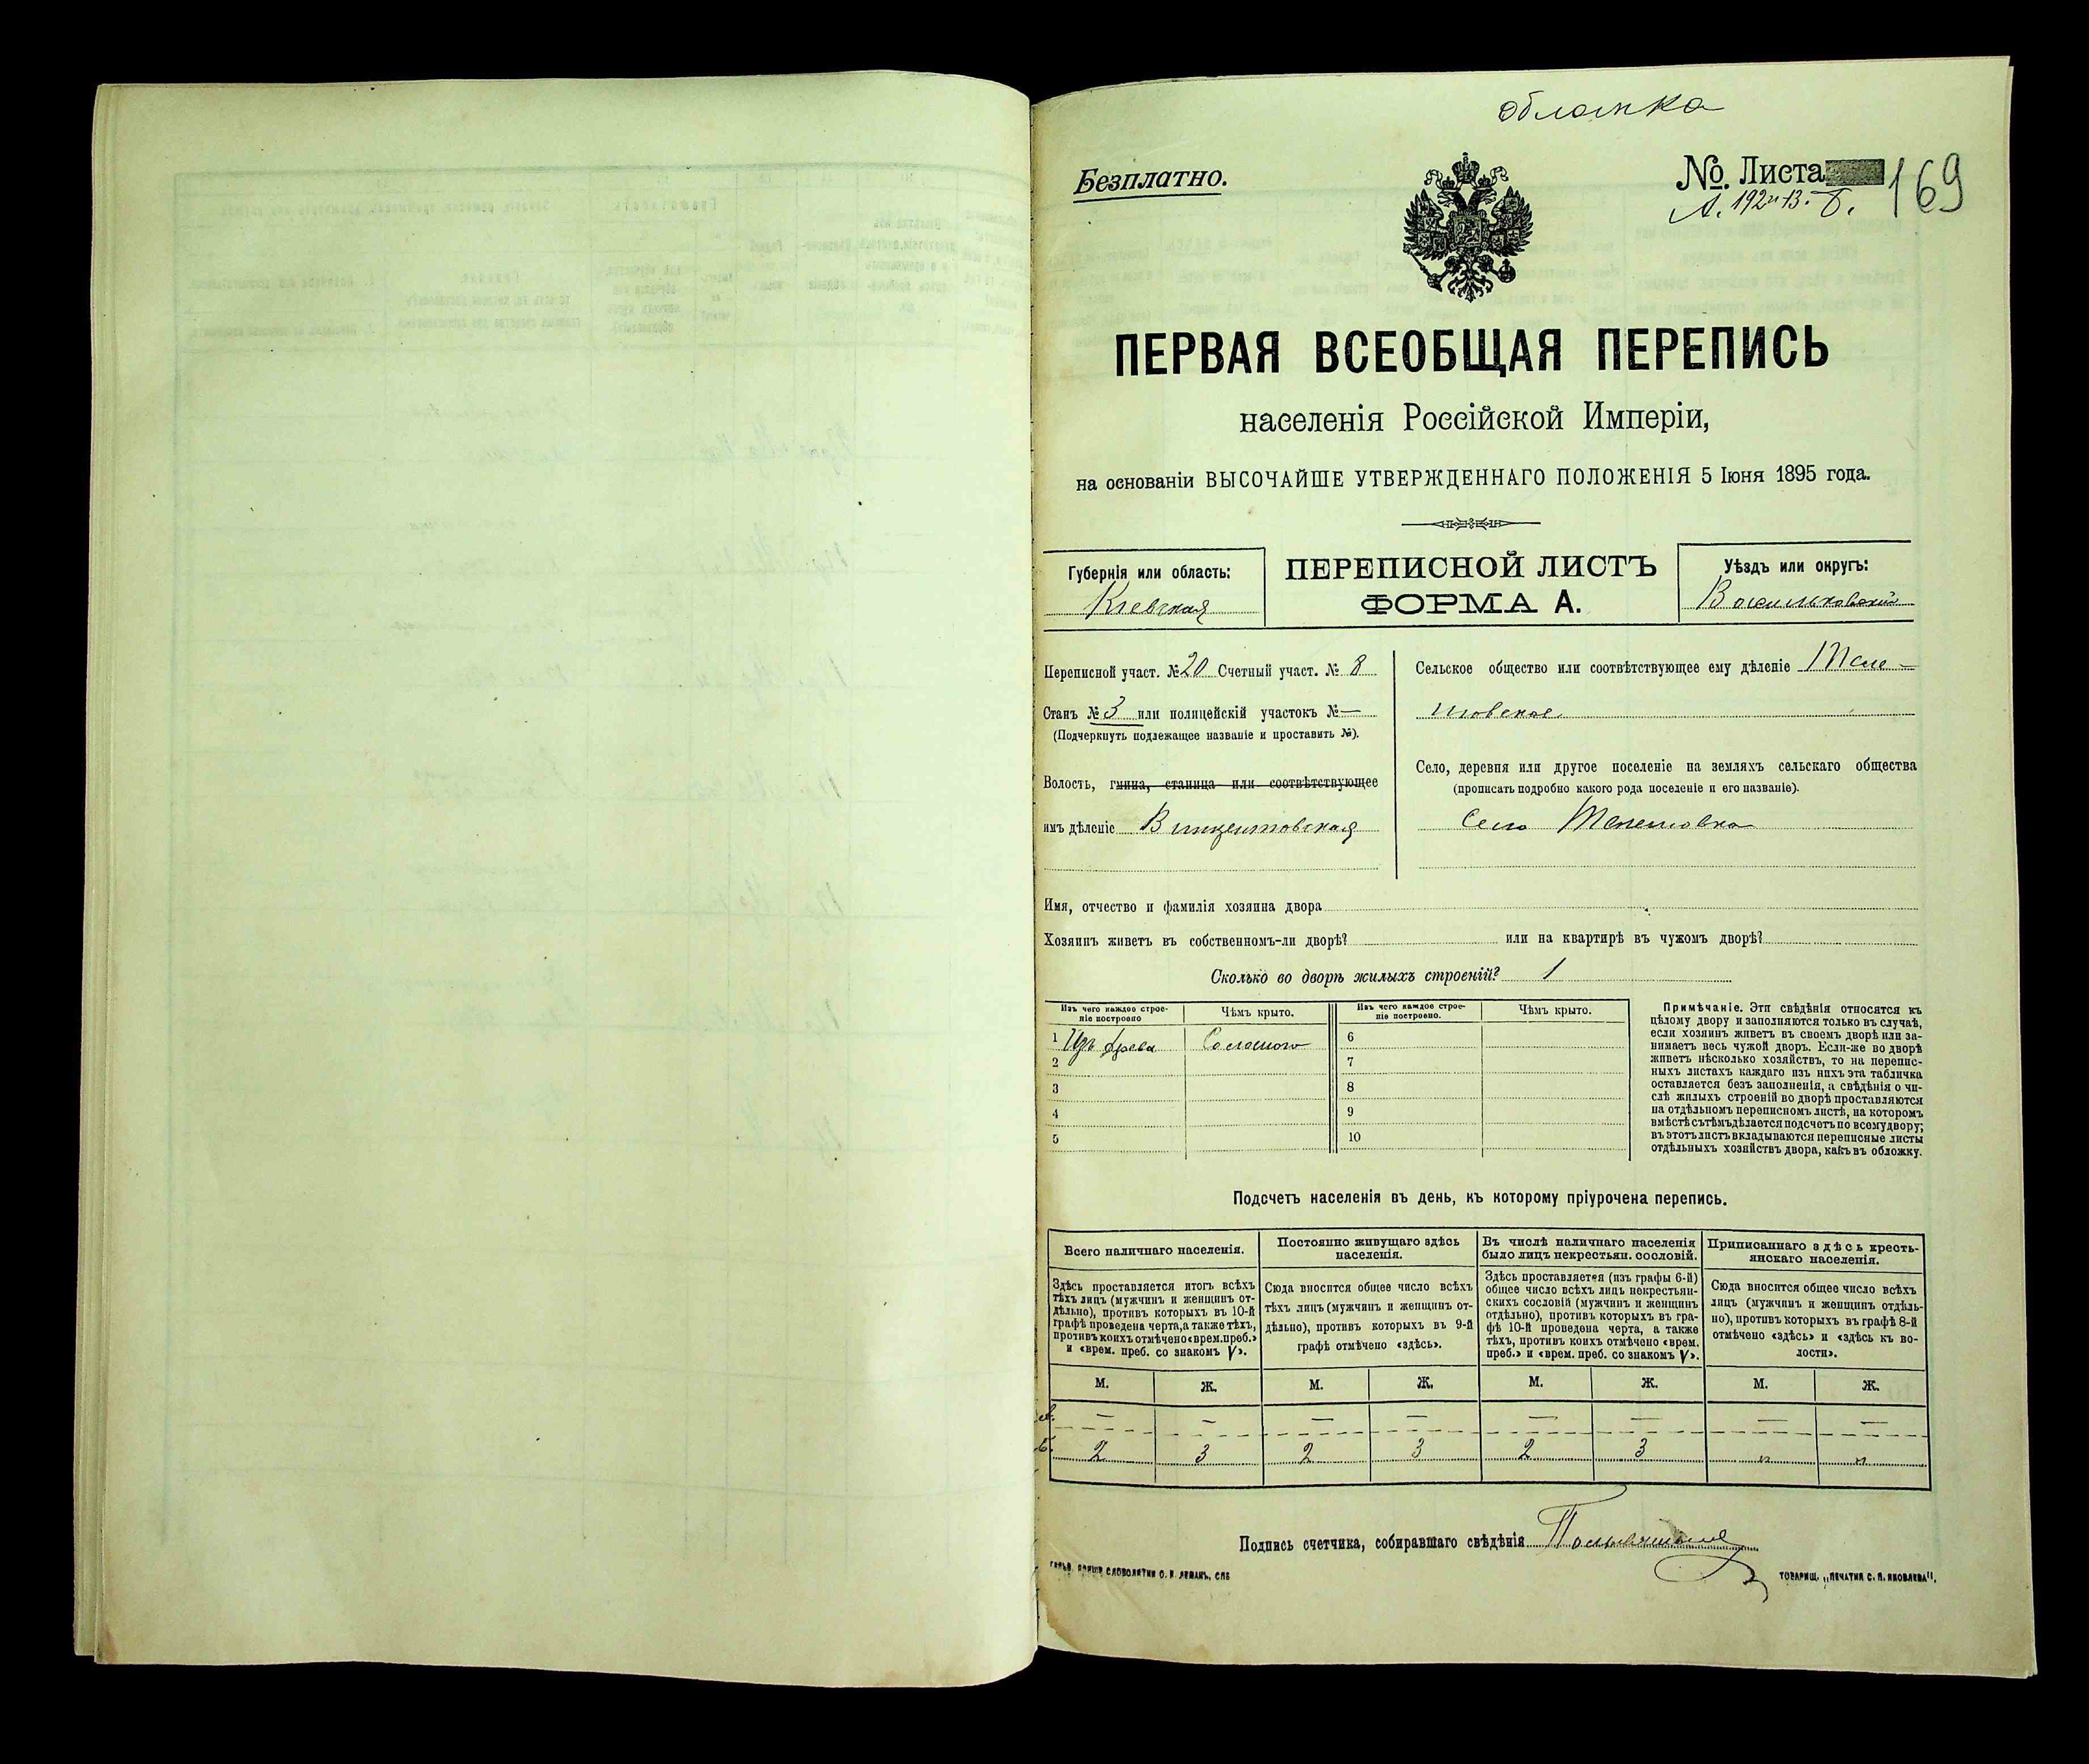 обложка
Безплатно.
№. Листа 169
А. 192 и 13. Б.
ПЕРВАЯ ВСЕОБЩАЯ ПЕРЕПИСЬ
населенія Россійской Имперіи,
на основаніи ВЫСОЧАЙШЕ УТВЕРЖДЕННАГО ПОЛОЖЕНІЯ 5 Іюня 1895 года.
Губернія или область:
Кіевская
ПЕРЕПИСНОЙ ЛИСТЪ
ФОРМА А.
Уѣздъ или округъ:
Васильковскій
Переписной участ. № 20 Счетный участ. № 8
Станъ № 3 или полицейскій участокъ № —
(Подчеркнуть подлежащее названіе и проставить №).
Волость, гмина, станица или соотвѣтствующее
имъ дѣленіе Винцентовская
Сельское общество или соотвѣтствующее ему дѣленіе
Село, деревня или другое поселеніе на земляхъ сельскаго общества
(прописать подробно какого рода поселеніе и его названіе).
Село
Имя, отчество и фамилія хозяина двора
Хозяинъ живетъ въ собственномъ-ли дворѣ? или на квартирѣ въ чужомъ дворѣ?
Сколько во дворѣ жилыхъ строеній? 1
Изъ чего каждое строе-
ніе построено
Чѣмъ крыто.
Изъ чего каждое строе-
ніе построено.
Чѣмъ крыто.
1 Изъ древа Соломою 6
2 7
3 8
4 9
5 10
Примѣчаніе. Эти свѣдѣнія относятся къ
цѣлому двору и заполняются только въ случаѣ,
если хозяинъ живетъ въ своемъ дворѣ или за-
нимаетъ весь чужой дворъ. Если-же во дворѣ
живетъ нѣсколько хозяйствъ, то на перепис-
ныхъ листахъ каждаго изъ нихъ эта табличка
оставляется безъ заполненія, а свѣдѣнія о чи-
слѣ жилыхъ строеній во дворѣ проставляются
на отдѣльномъ переписномъ листѣ, на которомъ
вмѣстѣ съ тѣмъ дѣлается подсчетъ по всему двору;
въ этотъ листъ вкладываются переписные листы
отдѣльныхъ хозяйствъ двора, какъ въ обложку.
Подсчетъ населенія въ день, къ которому пріурочена перепись.
Всего наличнаго населенія.
Здѣсь проставляется итогъ всѣхъ
тѣхъ лицъ (мужчинъ и женщинъ от-
дѣльно), противъ которыхъ въ 10-й
графѣ проведена черта, а также тѣхъ,
противъ коихъ отмѣчено «врем. преб.»
и «врем. преб. со знакомъ V».
Постоянно живущаго здѣсь
населенія.
Сюда вносится общее число всѣхъ
тѣхъ лицъ (мужчинъ и женщинъ от-
дѣльно), противъ которыхъ въ 9-й
графѣ отмѣчено «здѣсь».
Въ числѣ наличнаго населенія
было лицъ некрестьян. сословій.
Здѣсь проставляется (изъ графы 6-й)
общее число всѣхъ лицъ некрестьян-
скихъ сословій (мужчинъ и женщинъ
отдѣльно), противъ которыхъ въ гра-
фѣ 10-й проведена черта, а также
тѣхъ, противъ коихъ отмѣчено «врем.
преб.» и «врем. преб. со знакомъ V».
Приписаннаго здѣсь кресть-
янскаго населенія.
Сюда вносится общее число всѣхъ
лицъ (мужчинъ и женщинъ отдѣль-
но), противъ которыхъ въ графѣ 8-й
отмѣчено «здѣсь» и «здѣсь къ во-
лости».
М. Ж. М. Ж. М. Ж. М. Ж.
А. — — — — — — — —
Б. 2 3 2 3 2 3 " "
Подпись счетчика, собиравшаго свѣдѣнія
СЛОВОЛИТНИ О. И. ЛЕМАНЪ, СПБ
ТОВАРИЩ. „ПЕЧАТНЯ С. П. ЯКОВЛЕВА".